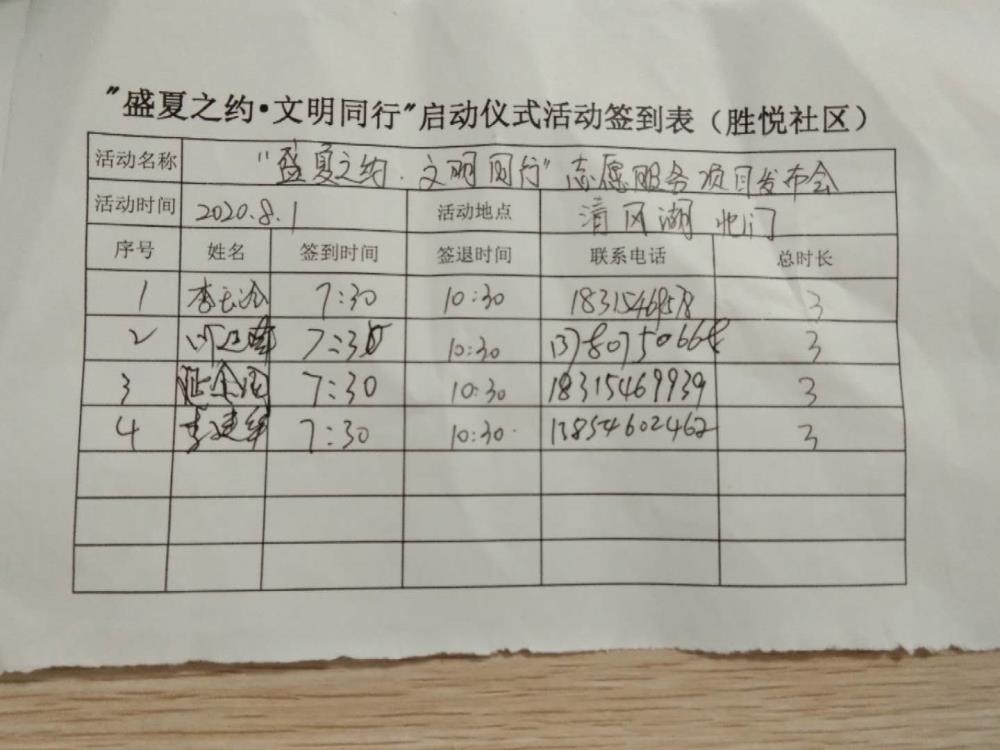 "盛夏之约·文明同行"启动仪式活动签到表（胜悦社区）
活动名称 "盛夏之约.文明同行"志愿服务项目发布会
活动时间 2020.8.1 活动地点 清风湖北门
序号 姓名 签到时间 签退时间 联系电话 总时长
1 7:30 10:30 3
2 7:30 10:30 3
3 7:30 10:30 18315469939 3
4 李建华 7:30 10:30 13854602462 3